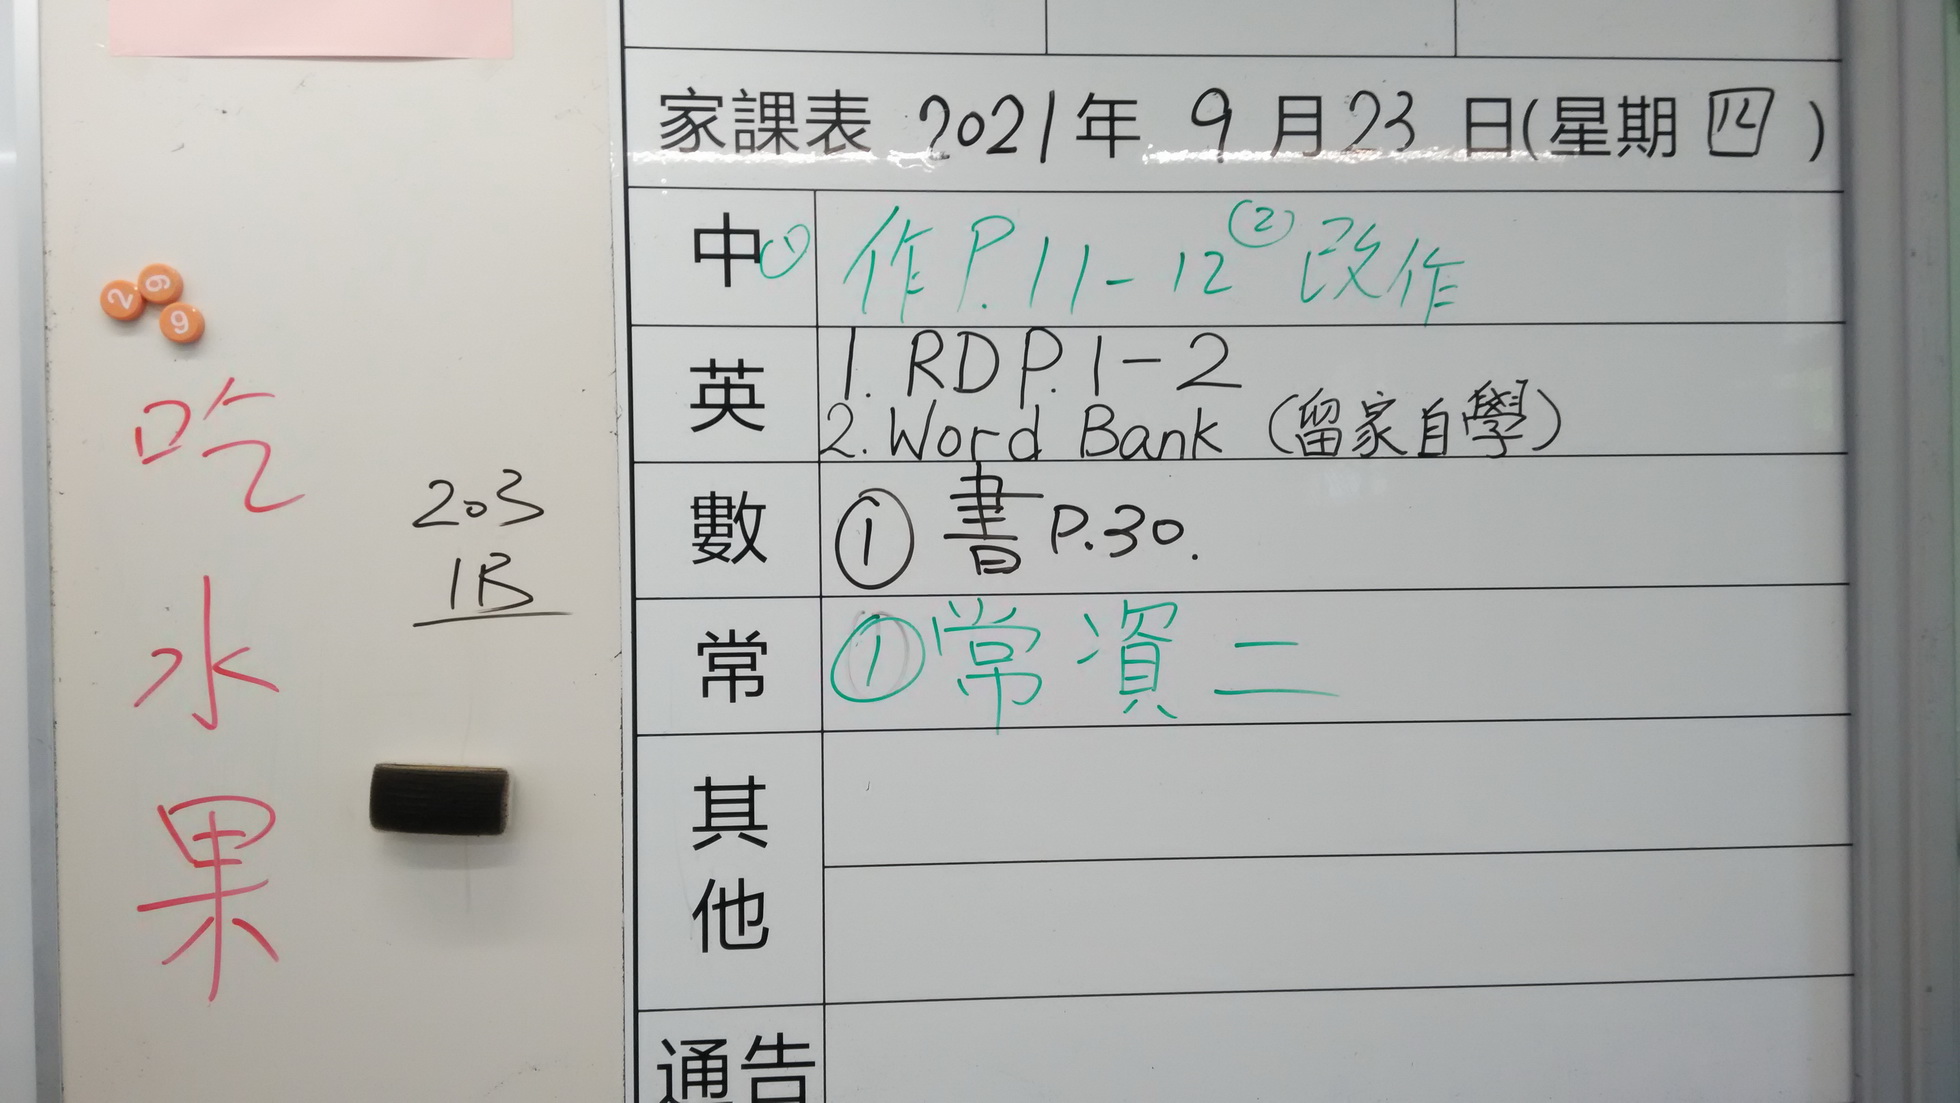 家課表 2021年 9月23日(星期四)
中 ① 作P.11-12 ② 改作
英 1. RD P.1-2
2. Word Bank (留家自學)
數 ① 書 P.30.
常 ① 常資二
其他
通告
2 9 9
吃水果
203
1B